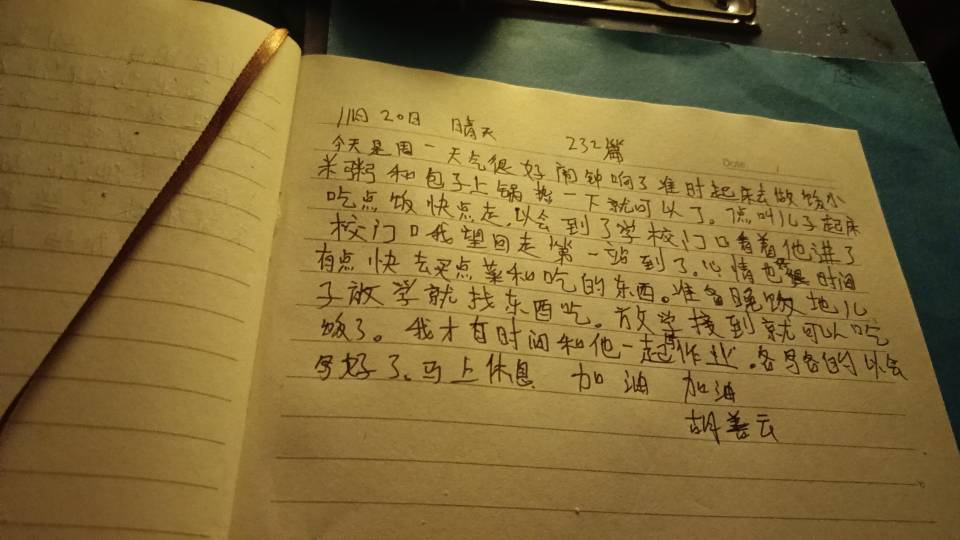 11月20日 晴天 232篇
Date
今天是周一天气很好闹钟响了准时起床去做饭小
米粥和包子上锅 一下就可以了。 叫儿子起床
吃点饭快点走.以会到了学校门口看着他进了
校门口我望回走第一站到了.心情也 时间
有点快去买点菜和吃的东西。准备晚饭地儿
子放学就找东西吃。放学接到就可以吃
饭了。我才有时间和他一起作业.各写各的以会
写好了、马上休息 加油 加油
胡善云